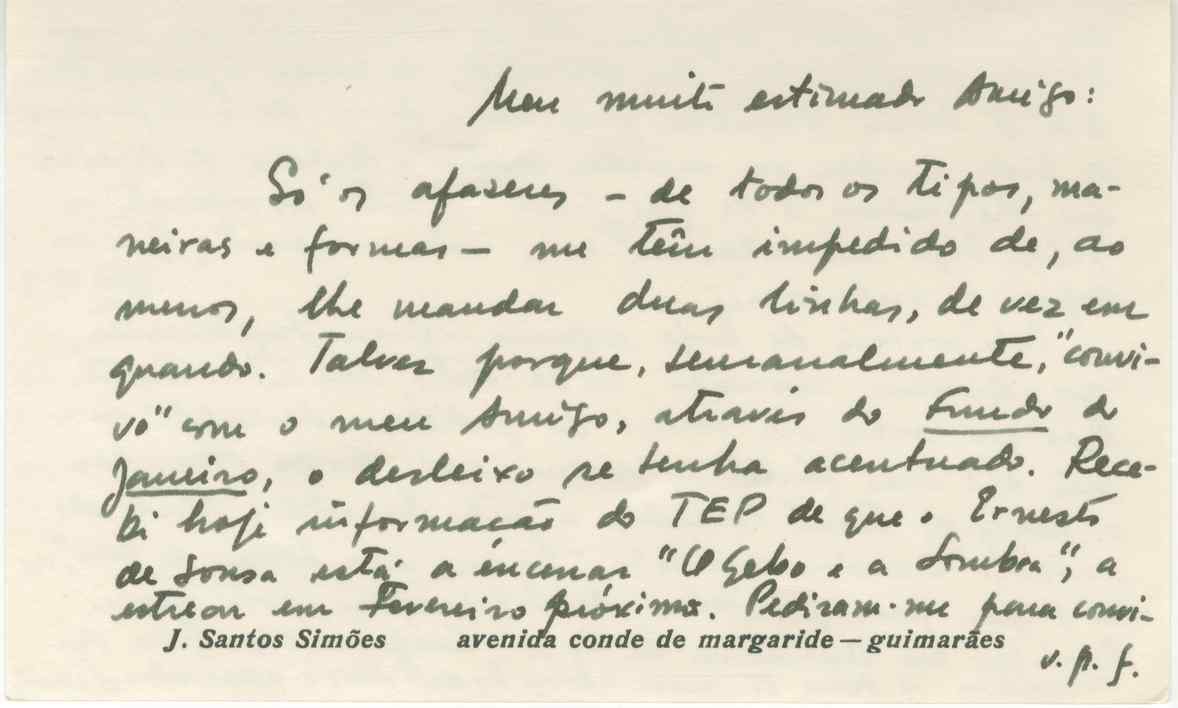 Meu muito estimado Amigo:
Só os afazeres – de todos os tipos, ma-
neiras e formas – me têm impedido de, ao
menos, lhe mandar duas linhas, de vez em
quando. Talvez porque, semanalmente, "convi-
vo" com o meu Amigo, através do Fundo do
Janeiro, o desleixo se tenha acentuado. Rece-
bi hoje informação do TEP de que o Ernesto
de Sousa está a encenar "O Gebo e a Sombra", a
estrear em Fevereiro próximo. Pediram-me para convi-
J. Santos Simões avenida conde de margaride — guimarães
v. p. f.